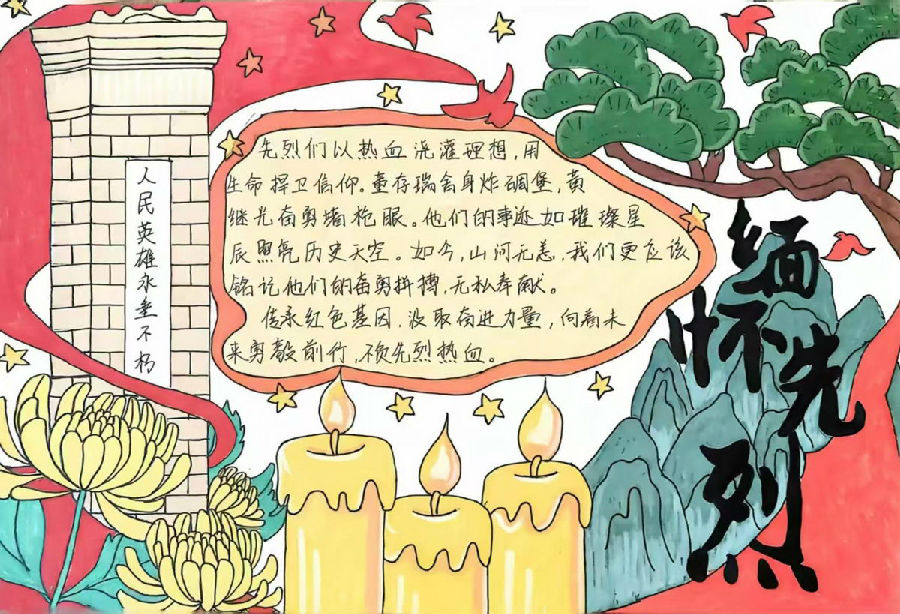 人民英雄永垂不朽
先烈们以热血浇灌理想，用
生命捍卫信仰。董存瑞舍身炸碉堡，黄
继光奋勇堵枪眼。他们的事迹如璀璨星
辰照亮历史天空。如今，山河无恙，我们更应该
铭记他们的奋勇拼搏，无私奉献。
传承红色基因，汲取奋进力量，向着未
来勇毅前行，不负先烈热血。
缅怀先烈